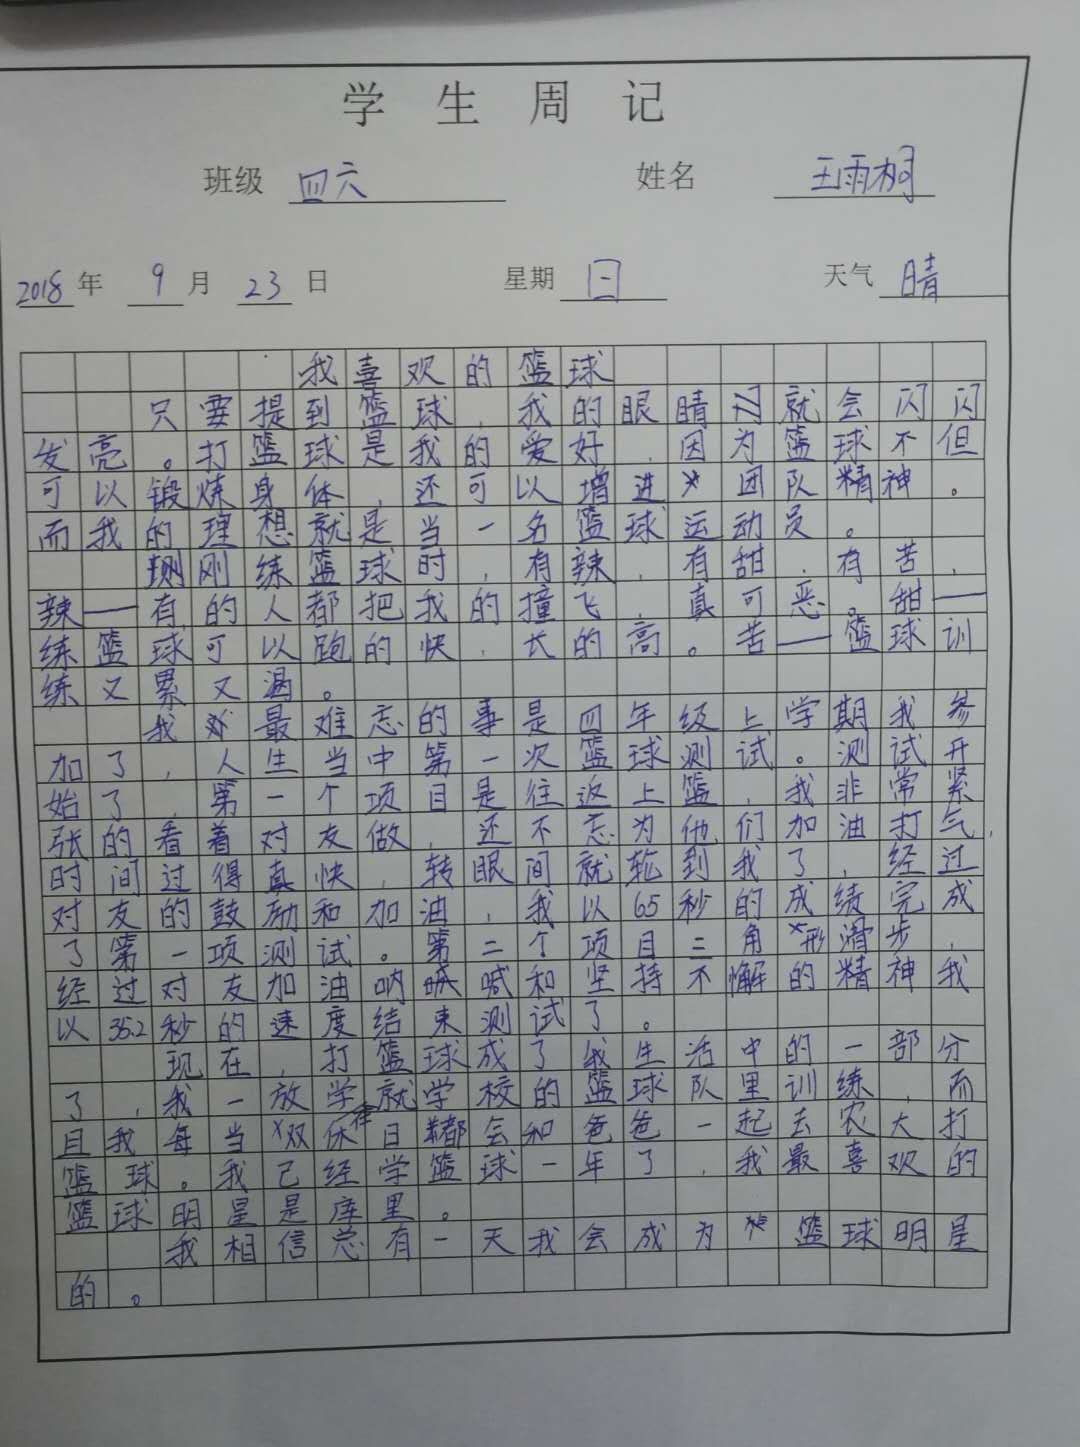 学生周记
班级 四六 姓名 王雨桐
2018年 9月 23日 星期 日 天气 晴
我喜欢的篮球
只要提到篮球，我的眼睛就会闪闪
发亮。打篮球是我的爱好，因为篮球不但
可以锻炼身体，还可以增进团队精神。
而我的理想就是当一名篮球运动员。
刚练篮球时，有辣，有甜，有苦，
辣——有的人都把我的撞飞，真可恶。甜——
练篮球可以跑的快，长的高。苦——篮球训
练又累又渴。
我最难忘的事是四年级上学期我参
加了，人生当中第一次篮球测试。测试开
始了，第一个项目是往返上篮，我非常紧
张的看着对友做，还不忘为他们加油打气，
时间过得真快，转眼间就轮到我了，经过
对友的鼓励和加油，我以65秒的成绩完成
了第一项测试。第二个项目三角形滑步，
经过对友加油呐喊和坚持不懈的精神我
以35.2秒的速度结束测试了。
现在，打篮球成了我生活中的一部分
了，我一放学就学校的篮球队里训练，而
且我每当双休日都会和爸爸一起去农大打
篮球。我已经学篮球一年了，我最喜欢的
篮球明星是库里。
我相信总有一天我会成为篮球明星
的。